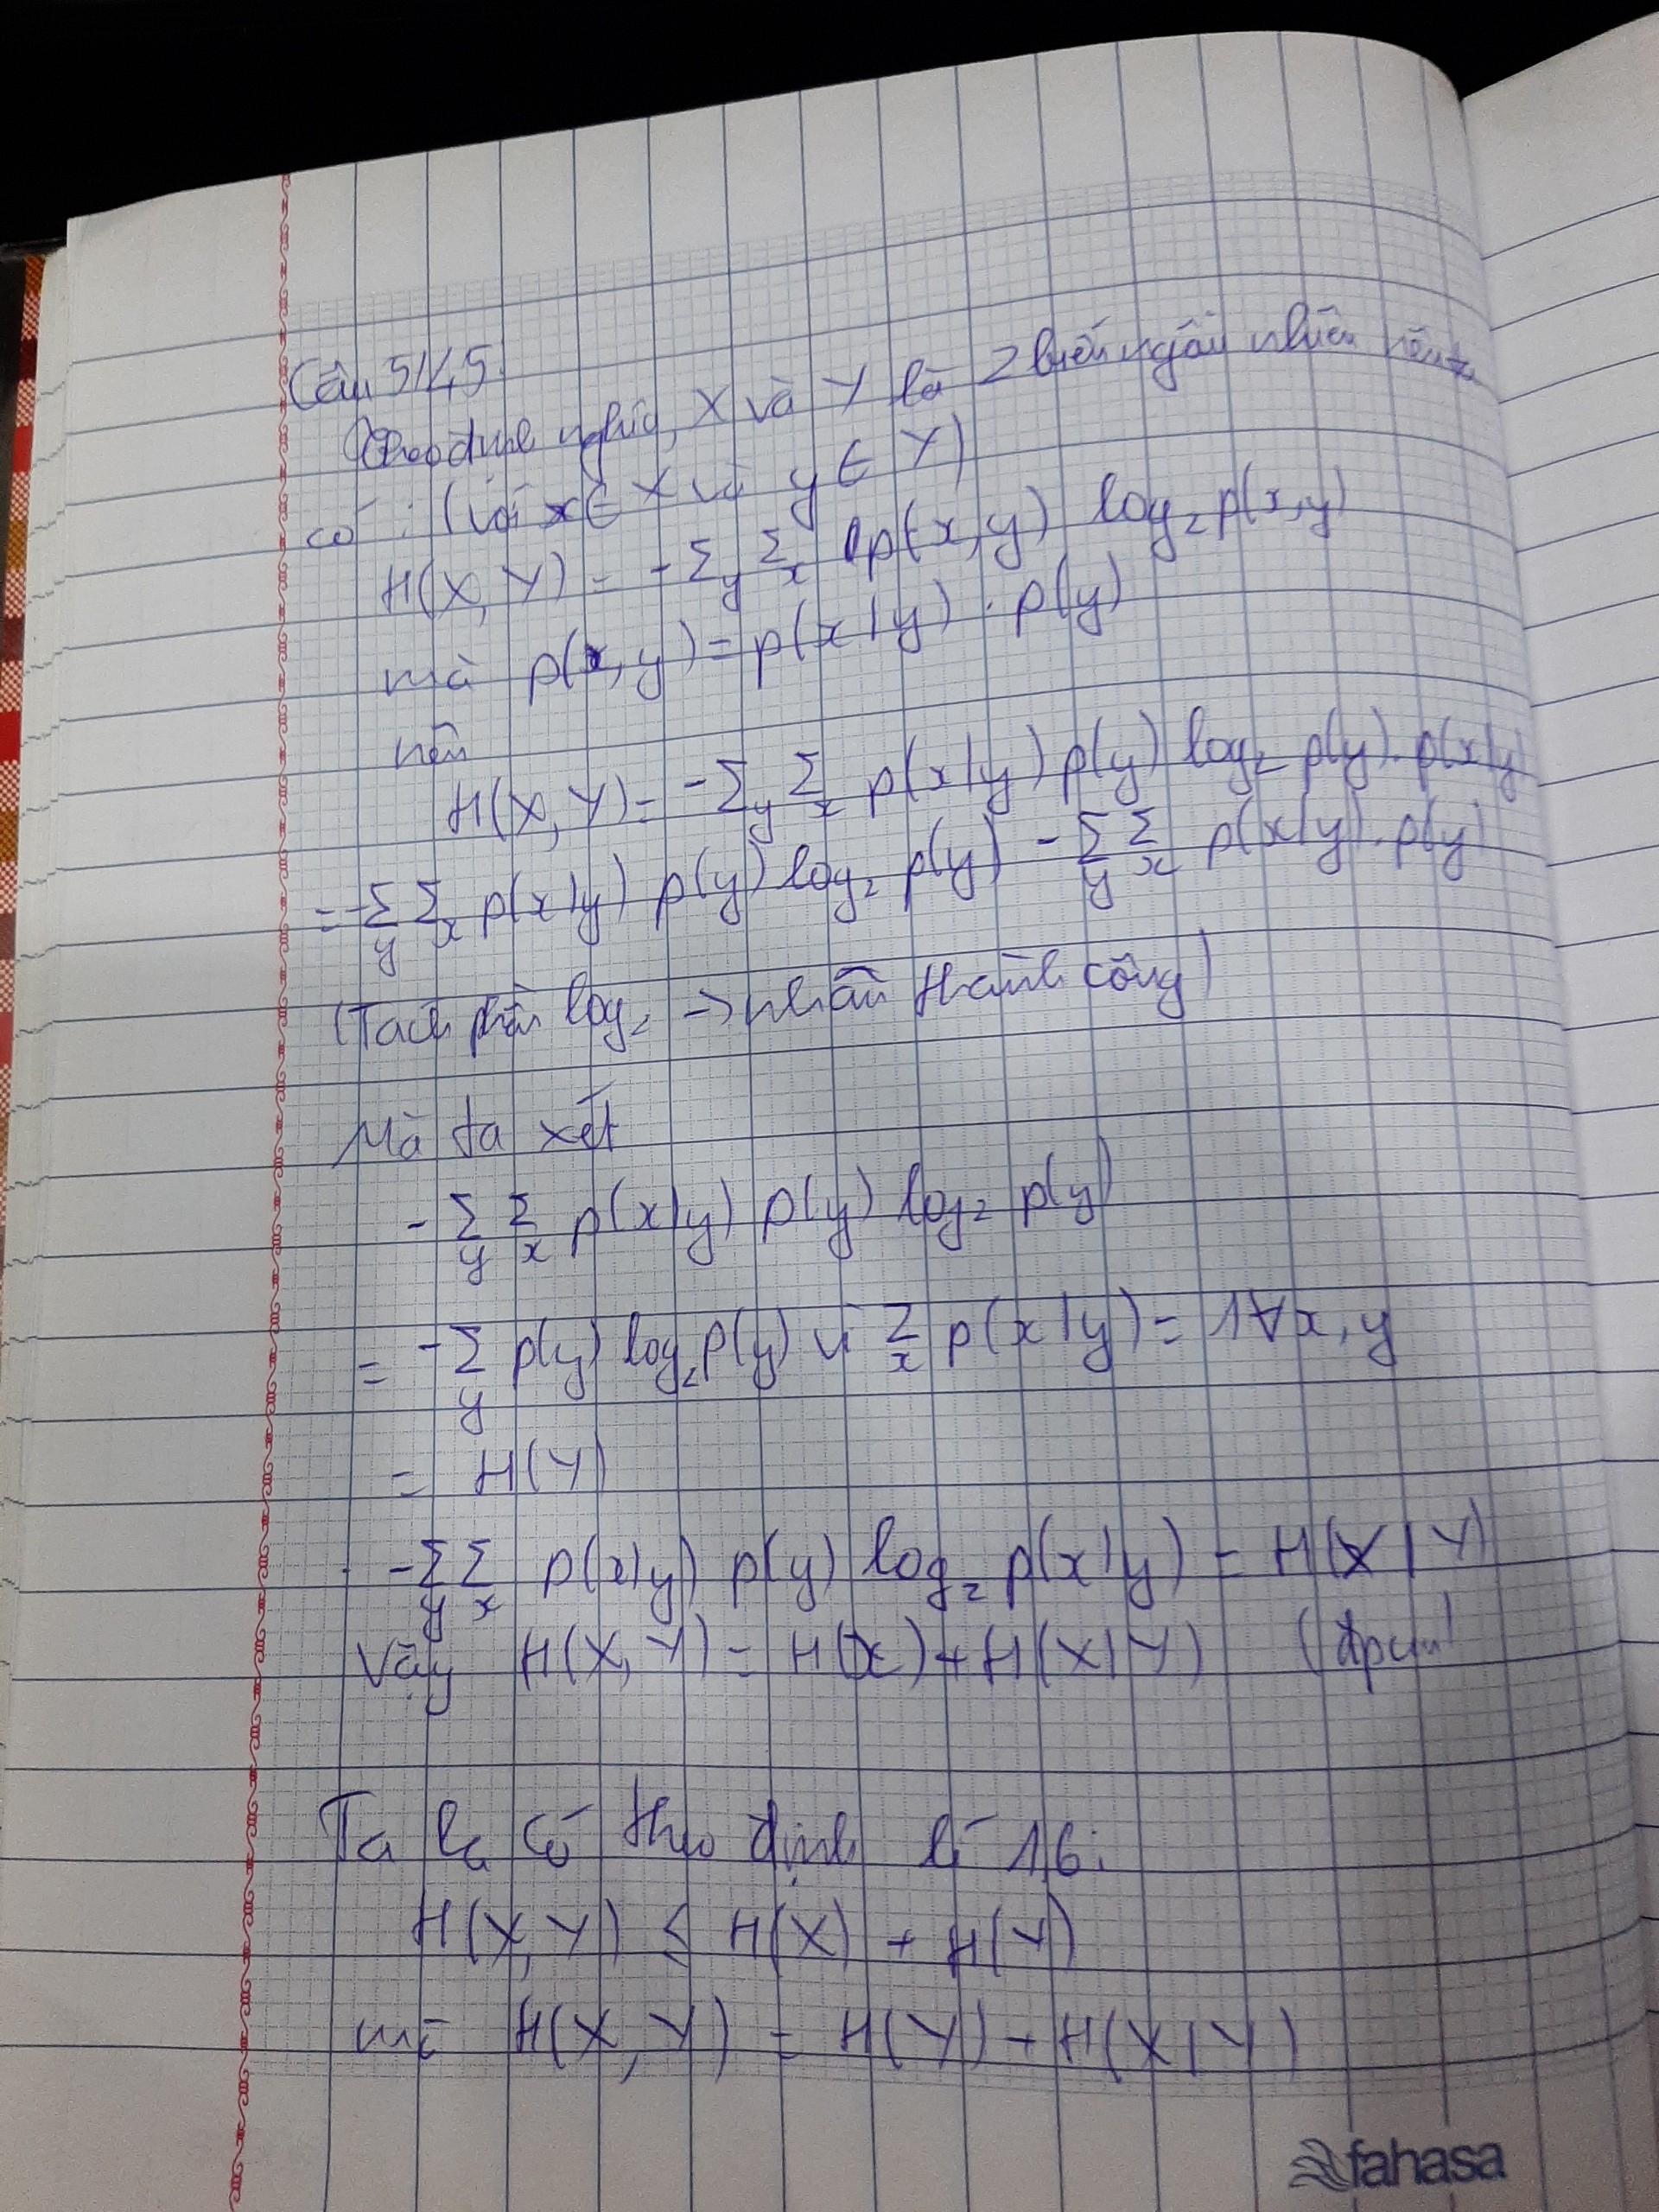 Câu 5/1.5.
Theo định nghĩa, X và Y là 2 biến ngẫu nhiên nên ta
có : (với x ∈ X và y ∈ Y)
H(X, Y) = - Σ_y Σ_x p(x,y) log₂ p(x,y)
mà p(x,y) = p(x|y) . p(y)
nên
H(X, Y) = - Σ_y Σ_x p(x|y) p(y) log₂ p(y). p(x|y)
= - Σ_y Σ_x p(x|y) p(y) log₂ p(y) - Σ_y Σ_x p(x|y). p(y)
(Tách phần log₂ -> nhân thành cộng)
Mà ta xét
- Σ_y Σ_x p(x|y) p(y) log₂ p(y)
= - Σ_y p(y) log₂ p(y) vì Σ_x p(x|y) = 1 ∀x, y
= H(Y)
- Σ_y Σ_x p(x|y) p(y) log₂ p(x|y) = H(X|Y)
Vậy H(X, Y) = H(x) + H(X|Y) (đpcm)
Ta có theo định lí 1.6:
H(X, Y) ≤ H(X) + H(Y)
mà H(X, Y) = H(Y) + H(X|Y)
fahasa